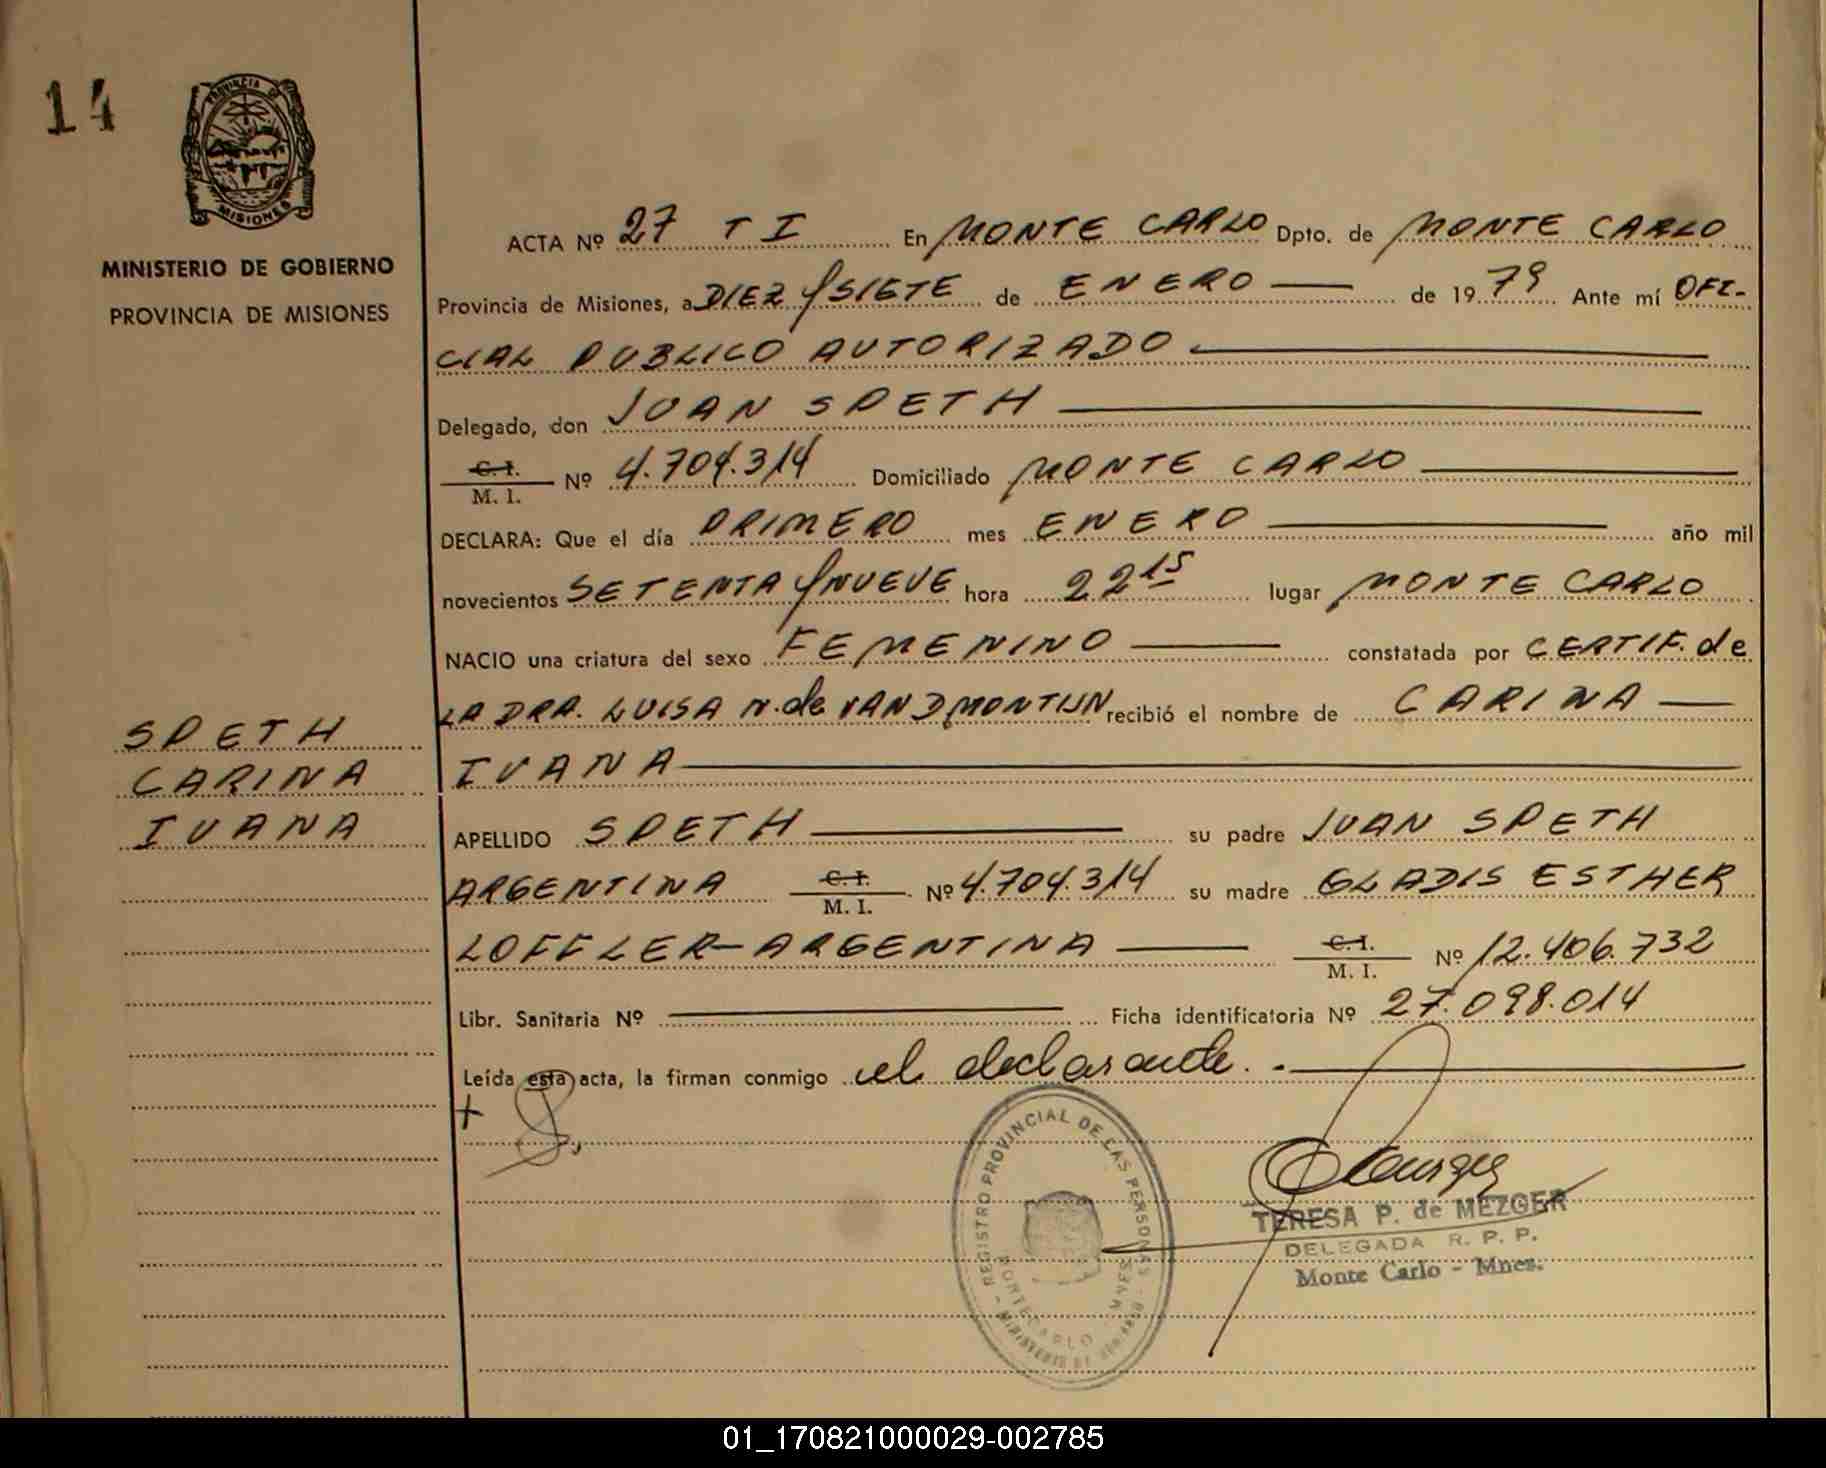 14
PROVINCIA DE
MISIONES
MINISTERIO DE GOBIERNO
PROVINCIA DE MISIONES
SPETH
CARINA
IVANA
ACTA Nº 27 T I En MONTE CARLO Dpto. de MONTE CARLO
Provincia de Misiones, a DIEZ y SIETE de ENERO de 1979 Ante mí OFI-
CIAL PUBLICO AUTORIZADO
Delegado, don JUAN SPETH
C. I.
M. I. Nº 4.704.314 Domiciliado MONTE CARLO
DECLARA: Que el día PRIMERO mes ENERO año mil
novecientos SETENTA y NUEVE hora 22 15 lugar MONTE CARLO
NACIO una criatura del sexo FEMENINO constatada por CERTIF. de
LA DRA. LUISA N. de VAND MONTIJN recibió el nombre de CARINA
IVANA
APELLIDO SPETH su padre JUAN SPETH
ARGENTINA C. I. M. I. Nº 4.704.314 su madre GLADIS ESTHER
LOFFLER - ARGENTINA C. I. M. I. Nº 12.406.732
Libr. Sanitaria Nº Ficha identificatoria Nº 27.098.014
Leída esta acta, la firman conmigo el declarante. -
REGISTRO PROVINCIAL DE LAS PERSONAS
MONTECARLO - MNES
MINISTERIO DE GOBIERNO
TERESA P. de MEZGER
DELEGADA R. P. P.
Monte Carlo - Mnes.
01_170821000029-002785